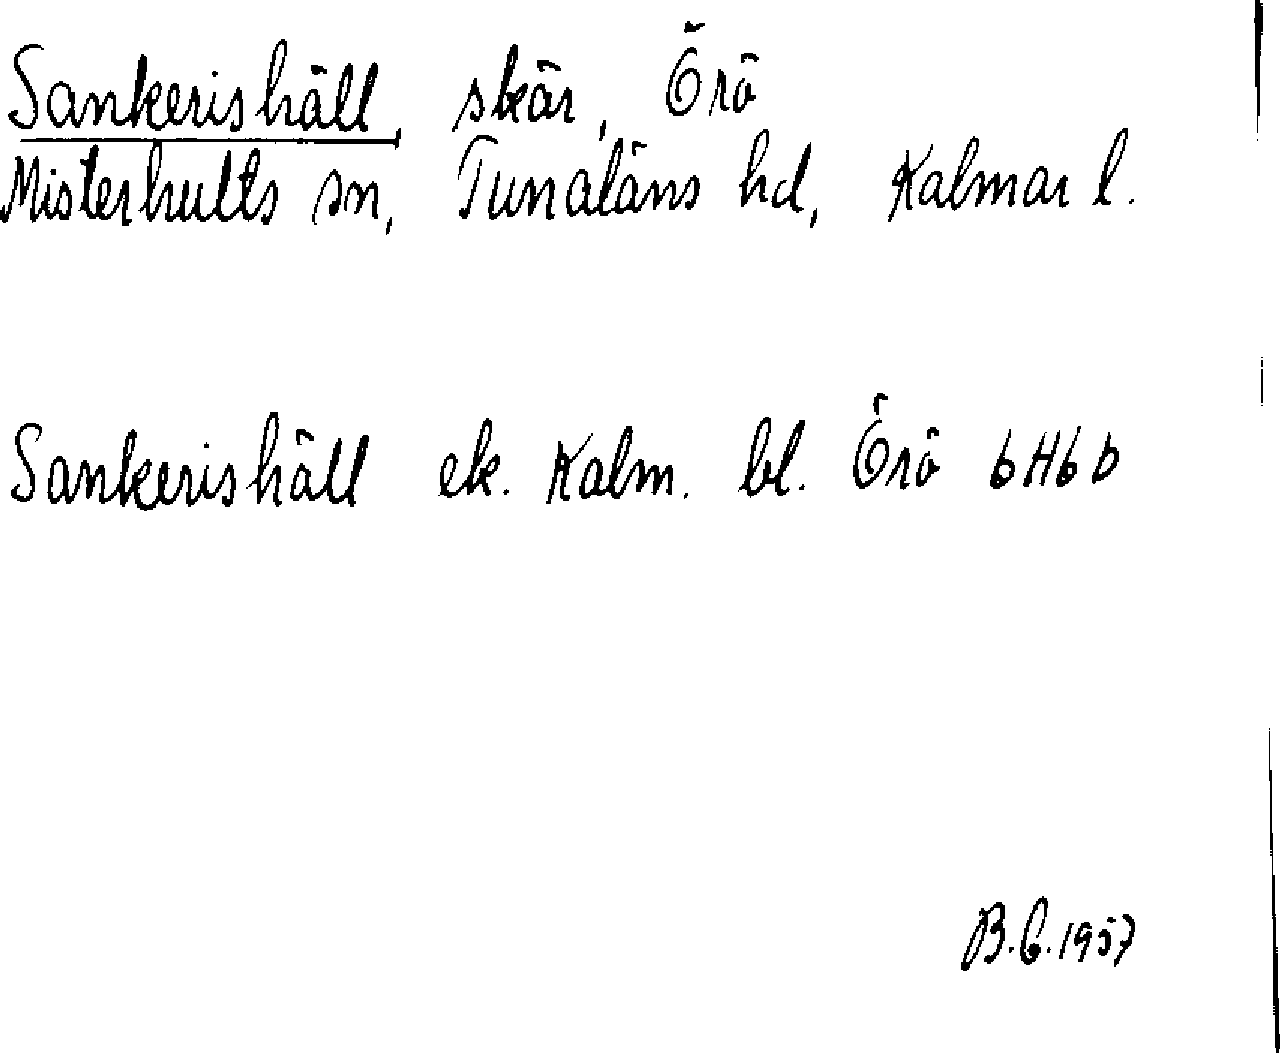 Sankerishäll, skär, Örö
Misterhults sn, Tunaläns hd, Kalmar l.
Sankerishäll ek. Kalm. bl. Örö 6H6b
B.C. 1957